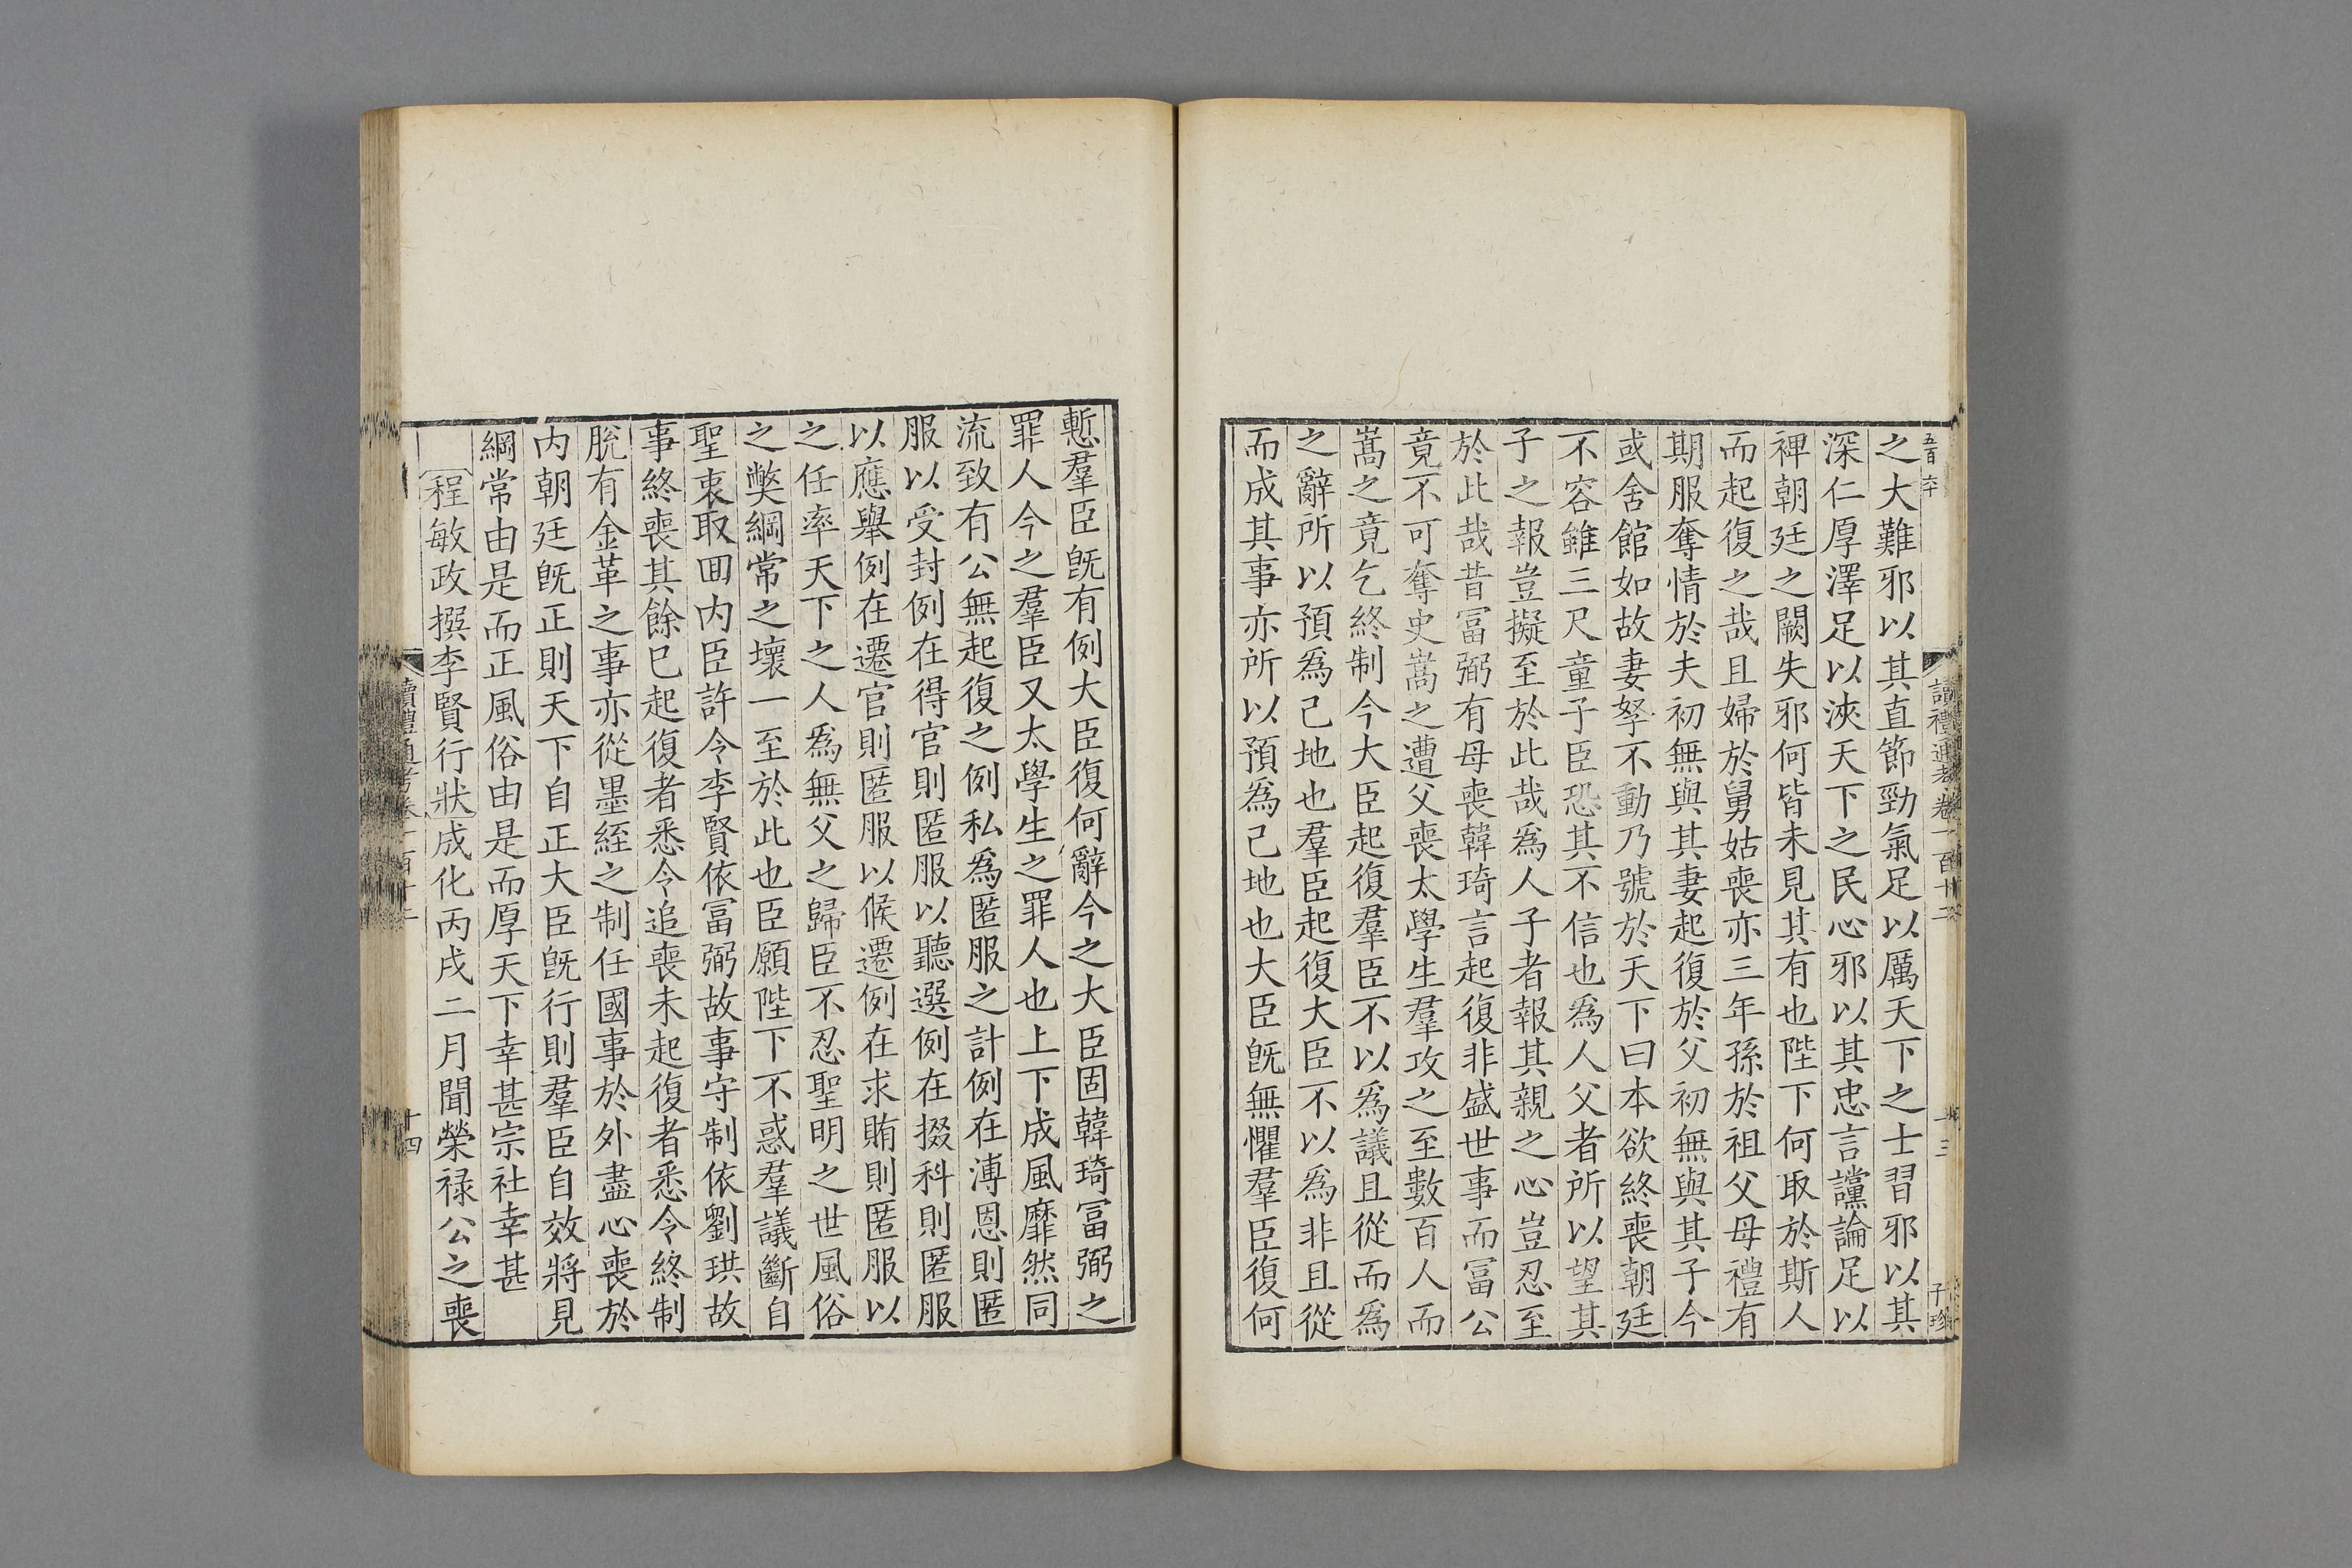 之大難邪以其直節勁氣足以厲天下之士習邪以其
深仁厚澤足以浹天下之民心邪以其忠言讜論足以
裨朝廷之闕失邪何皆未見其有也陛下何取於斯人
而起復之哉且婦於舅姑喪亦三年孫於祖父母禮有
期服奪情於夫初無與其妻起復於父初無與其子今
或舍館如故妻孥不動乃號於天下曰本欲終喪朝廷
不容雖三尺童子臣恐其不信也爲人父者所以望其
子之報豈擬至於此哉爲人子者報其親之心豈忍至
於此哉昔冨弼有母喪韓琦言起復非盛世事而冨公
竟不可奪史嵩之遭父喪太學生羣攻之至數百人而
嵩之竟乞終制今大臣起復羣臣不以爲議且從而爲
之辭所以預爲己地也羣臣起復大臣不以爲非且從
而成其事亦所以預爲己地也大臣旣無懼羣臣復何
慙羣臣旣有例大臣復何辭今之大臣固韓琦冨弼之
罪人今之羣臣又太學生之罪人也上下成風靡然同
流致有公無起復之例私爲匿服之計例在溥恩則匿
服以受封例在得官則匿服以聽選例在掇科則匿服
以應舉例在遷官則匿服以候遷例在求賄則匿服以
之任率天下之人爲無父之歸臣不忍聖明之世風俗
之獘綱常之壞一至於此也臣願陛下不惑羣議斷自
聖衷取回内臣許令李賢依冨弼故事守制依劉珙故
事終喪其餘已起復者悉令追喪未起復者悉令終制
脫有金革之事亦從墨絰之制任國事於外盡心喪於
内朝廷旣正則天下自正大臣旣行則羣臣自效將見
綱常由是而正風俗由是而厚天下幸甚宗社幸甚
程敏政撰李賢行狀成化丙戌二月聞榮禄公之喪
讀禮通考卷一百十二
十四
讀禮通考卷一百十二
十三
子珍